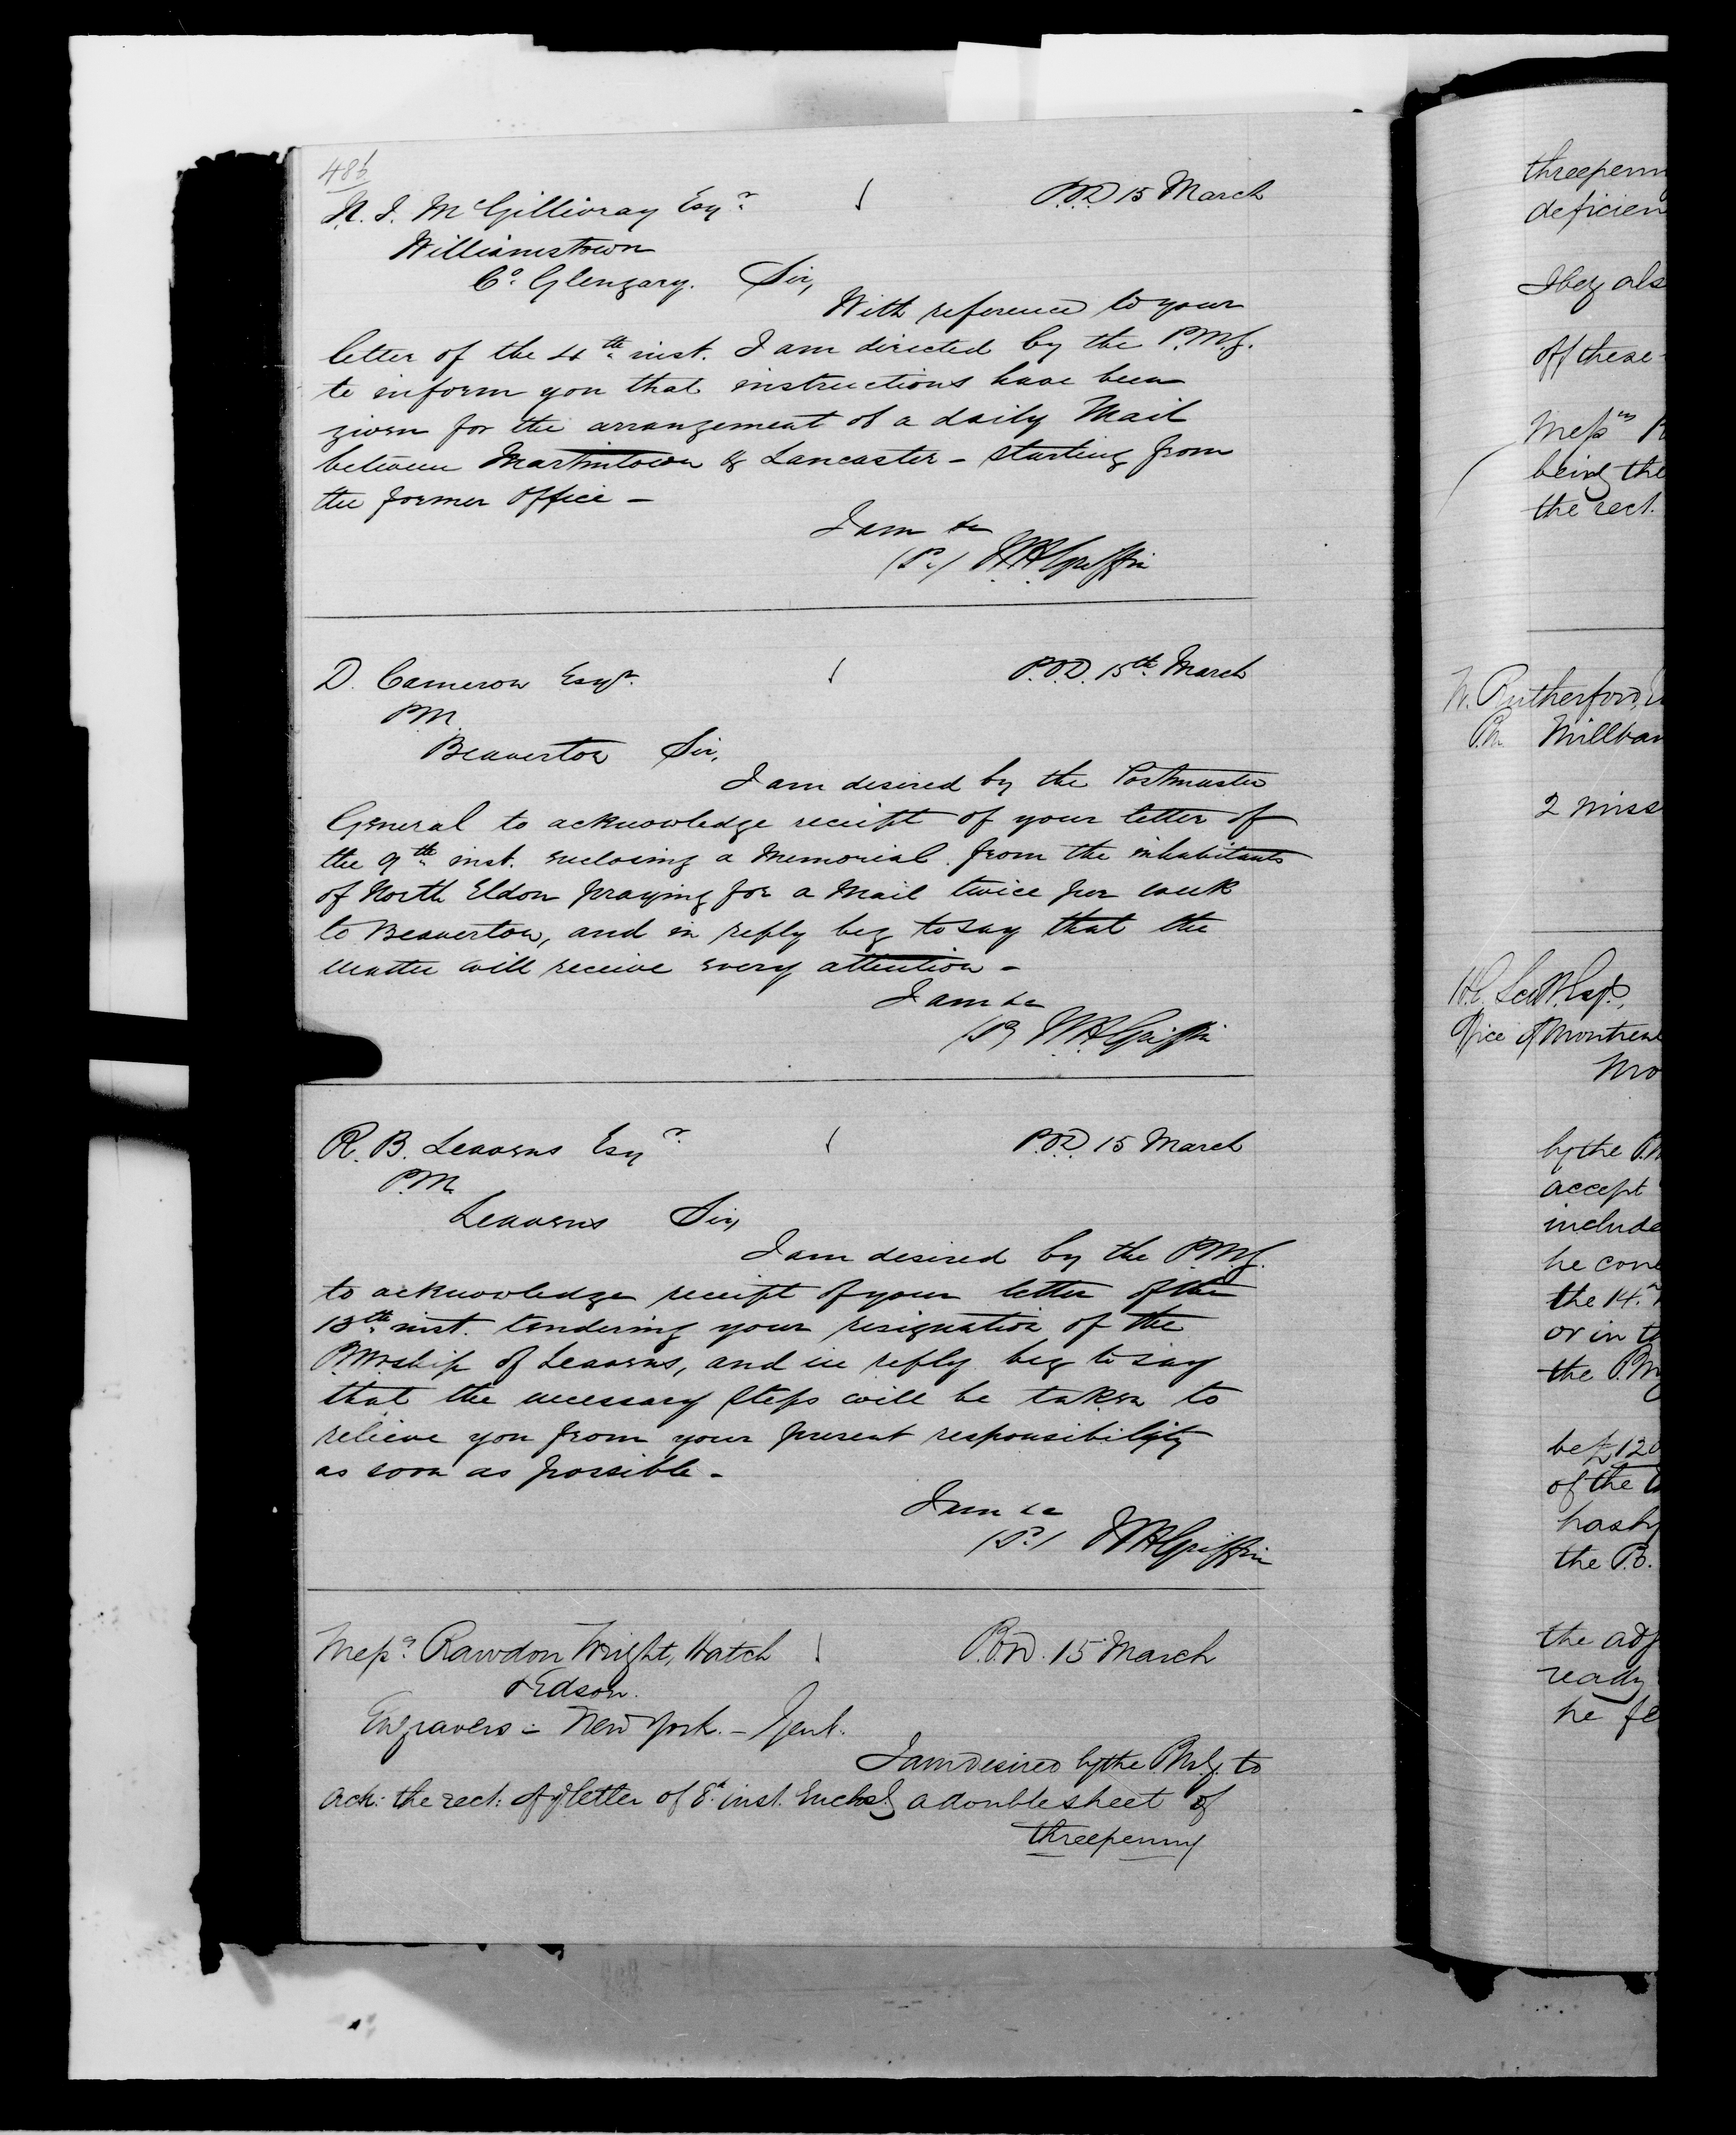 486
N. J. McGillivray Esqr.
P.O.D 15 March
Williamstown
Co. Glengary. Sir,
With reference to your
letter of the 4th inst. I am directed by the P.M.G.
to inform you that instructions have been
given for the arrangement of a daily Mail
between Martintown & Lancaster - starting from
the former Office -
I am &c
(Sd) W.H. Griffin
D. Cameron Esqr.
P.O.D. 15th March
PM
Beaverton Sir,
I am desired by the Postmaster
General to acknowledge receipt of your letter of
the 9th inst. enclosing a Memorial from the inhabitants
of North Eldon praying for a Mail twice per week
to Beaverton, and in reply beg to say that the
matter will receive every attention -
I am &c
(Sd) W.H. Griffin
R. B. Leavens Esqr
P.O.D. 15 March
P.M.
Leavens Sir,
I am desired by the P.M.G.
to acknowledge receipt of your letter of the
13th inst. tendering your resignation of the
P.M.ship of Leavens, and in reply beg to say
that the necessary steps will be taken to
relieve you from your present responsibility
as soon as possible -
I am &c
(Sd) W.H. Griffin
Messrs Rawdon Wright, Hatch
P.O.D. 15 March
& Edson.
Engravers - New York. - Gent.
I am desired by the P.M.G. to
ack: the rect: of yr letter of 8th inst. Enclosg a double sheet of
threepenny
threepenn
deficien
I beg als
off these
Messrs R
being the
the rect.
W. Rutherford,
P.M. Millban
2 miss
Esq.,
Office of Montreal
Mo
by the P.M
accept
include
he con
the 14th
or in
the P.M
be £120
of the
has by
the P.O.
the adj
ready
he fe